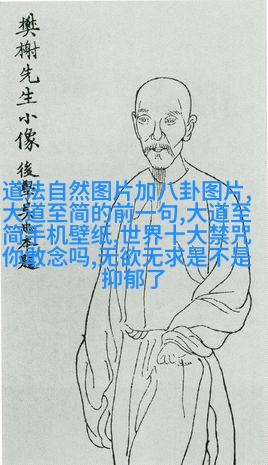 樊榭先生小像
後學
道法自然图片加八卦图片,
大道至简的前一句,大道至
简手机壁纸,世界十大禁咒
你敢念吗,无欲无求是不是
抑郁了